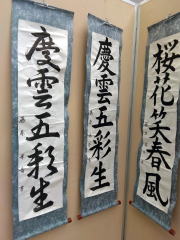 慶雲五彩生
慶雲五彩生
桜花笑春風